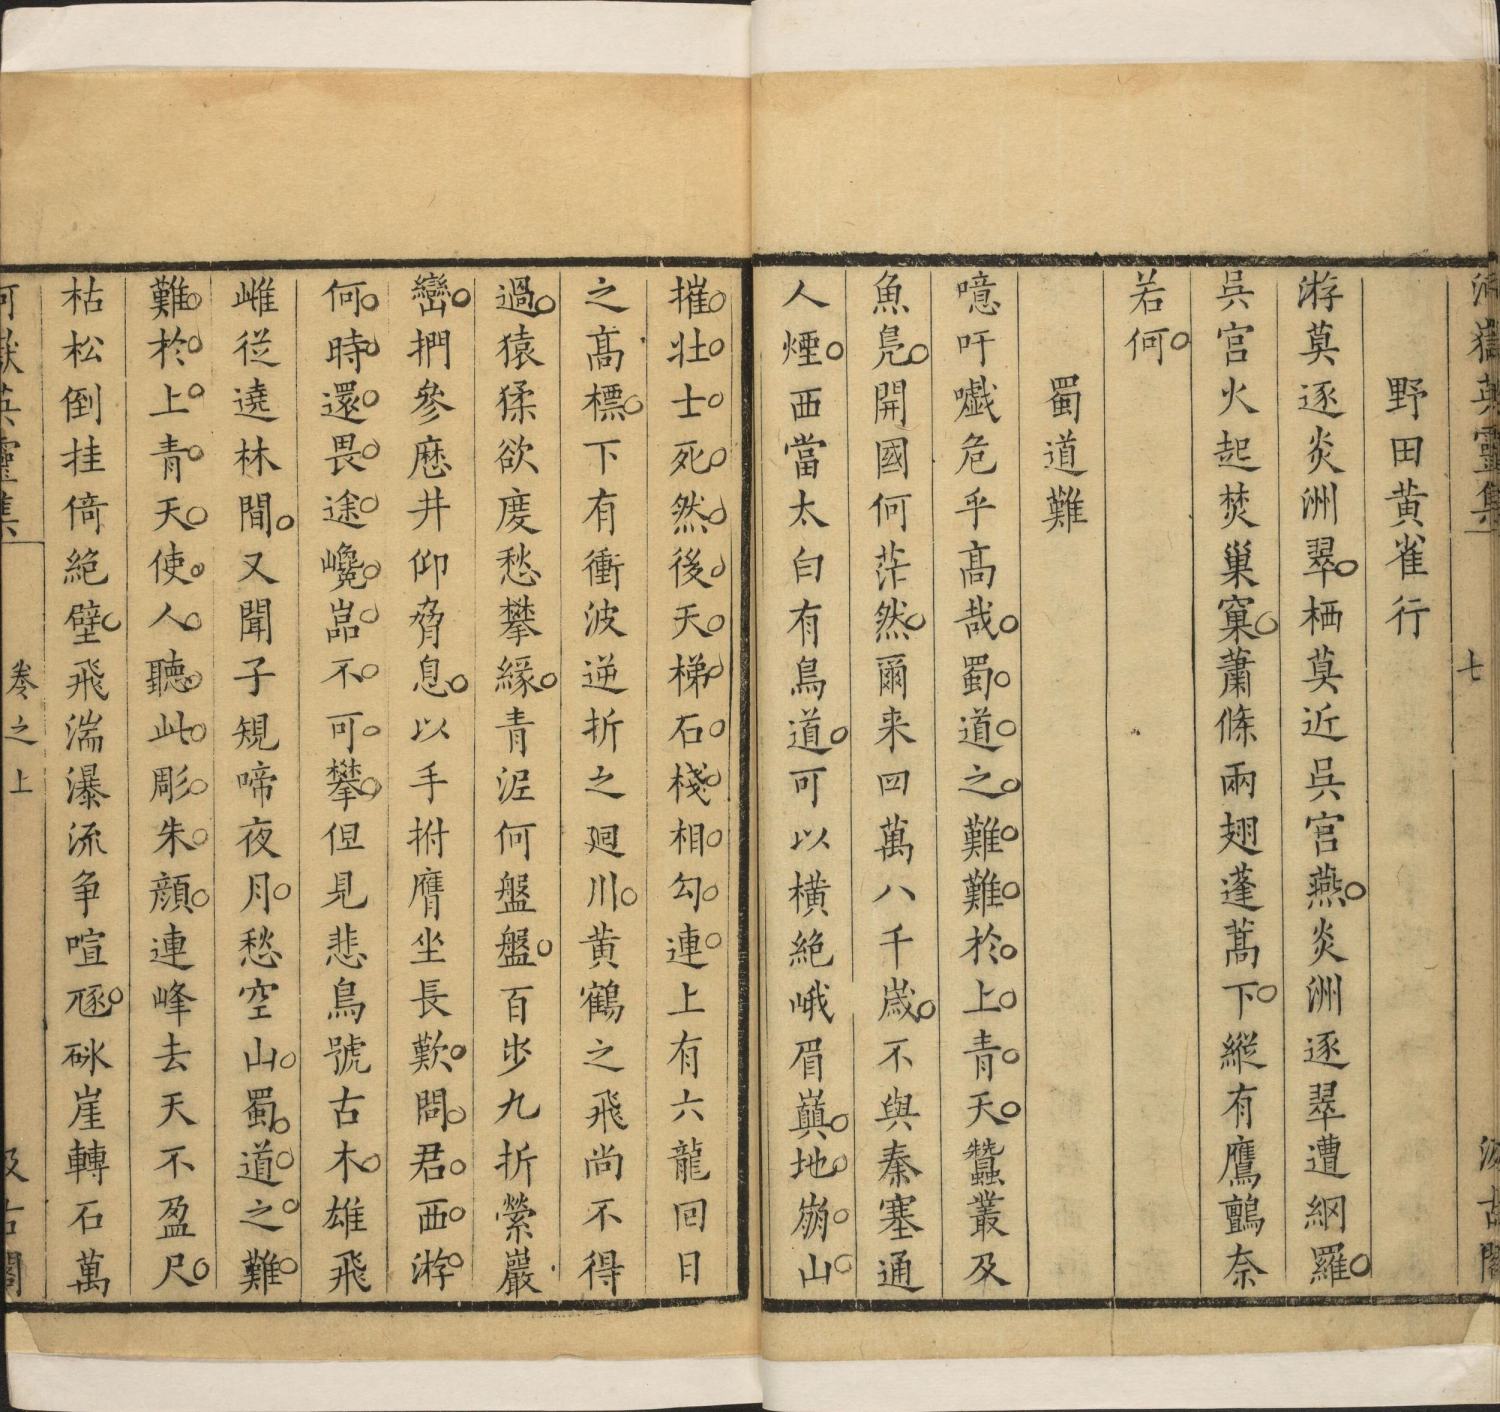 河嶽英靈集 七 汲古閣
野田黄雀行
游莫逐炎洲翠栖莫近吳宮燕炎洲逐翠遭綱羅
吳宮火起焚巢窠蕭條兩翅蓬蒿下縱有鷹鸇奈
若何
蜀道難
噫吁嚱危乎髙哉蜀道之難難於上青天蠶叢及
魚鳧開國何茫然爾来四萬八千歳不與秦塞通
人煙西當太白有鳥道可以橫絶峨眉巔地崩山
摧壮士死然後天梯石棧相勾連上有六龍回日
之髙標下有衝波逆折之廻川黄鶴之飛尚不得
過猿猱欲度愁攀緣青泥何盤盤百步九折縈巖
巒捫參歴井仰脅息以手拊膺坐長歎問君西游
何時還畏途巉嵒不可攀但見悲鳥號古木雄飛
雌從遶林間又聞子規啼夜月愁空山蜀道之難
難於上青天使人聽此彫朱顔連峰去天不盈尺
枯松倒挂倚絶壁飛湍瀑流争喧豗砯崖轉石萬
河嶽英靈集 卷之上 汲古閣